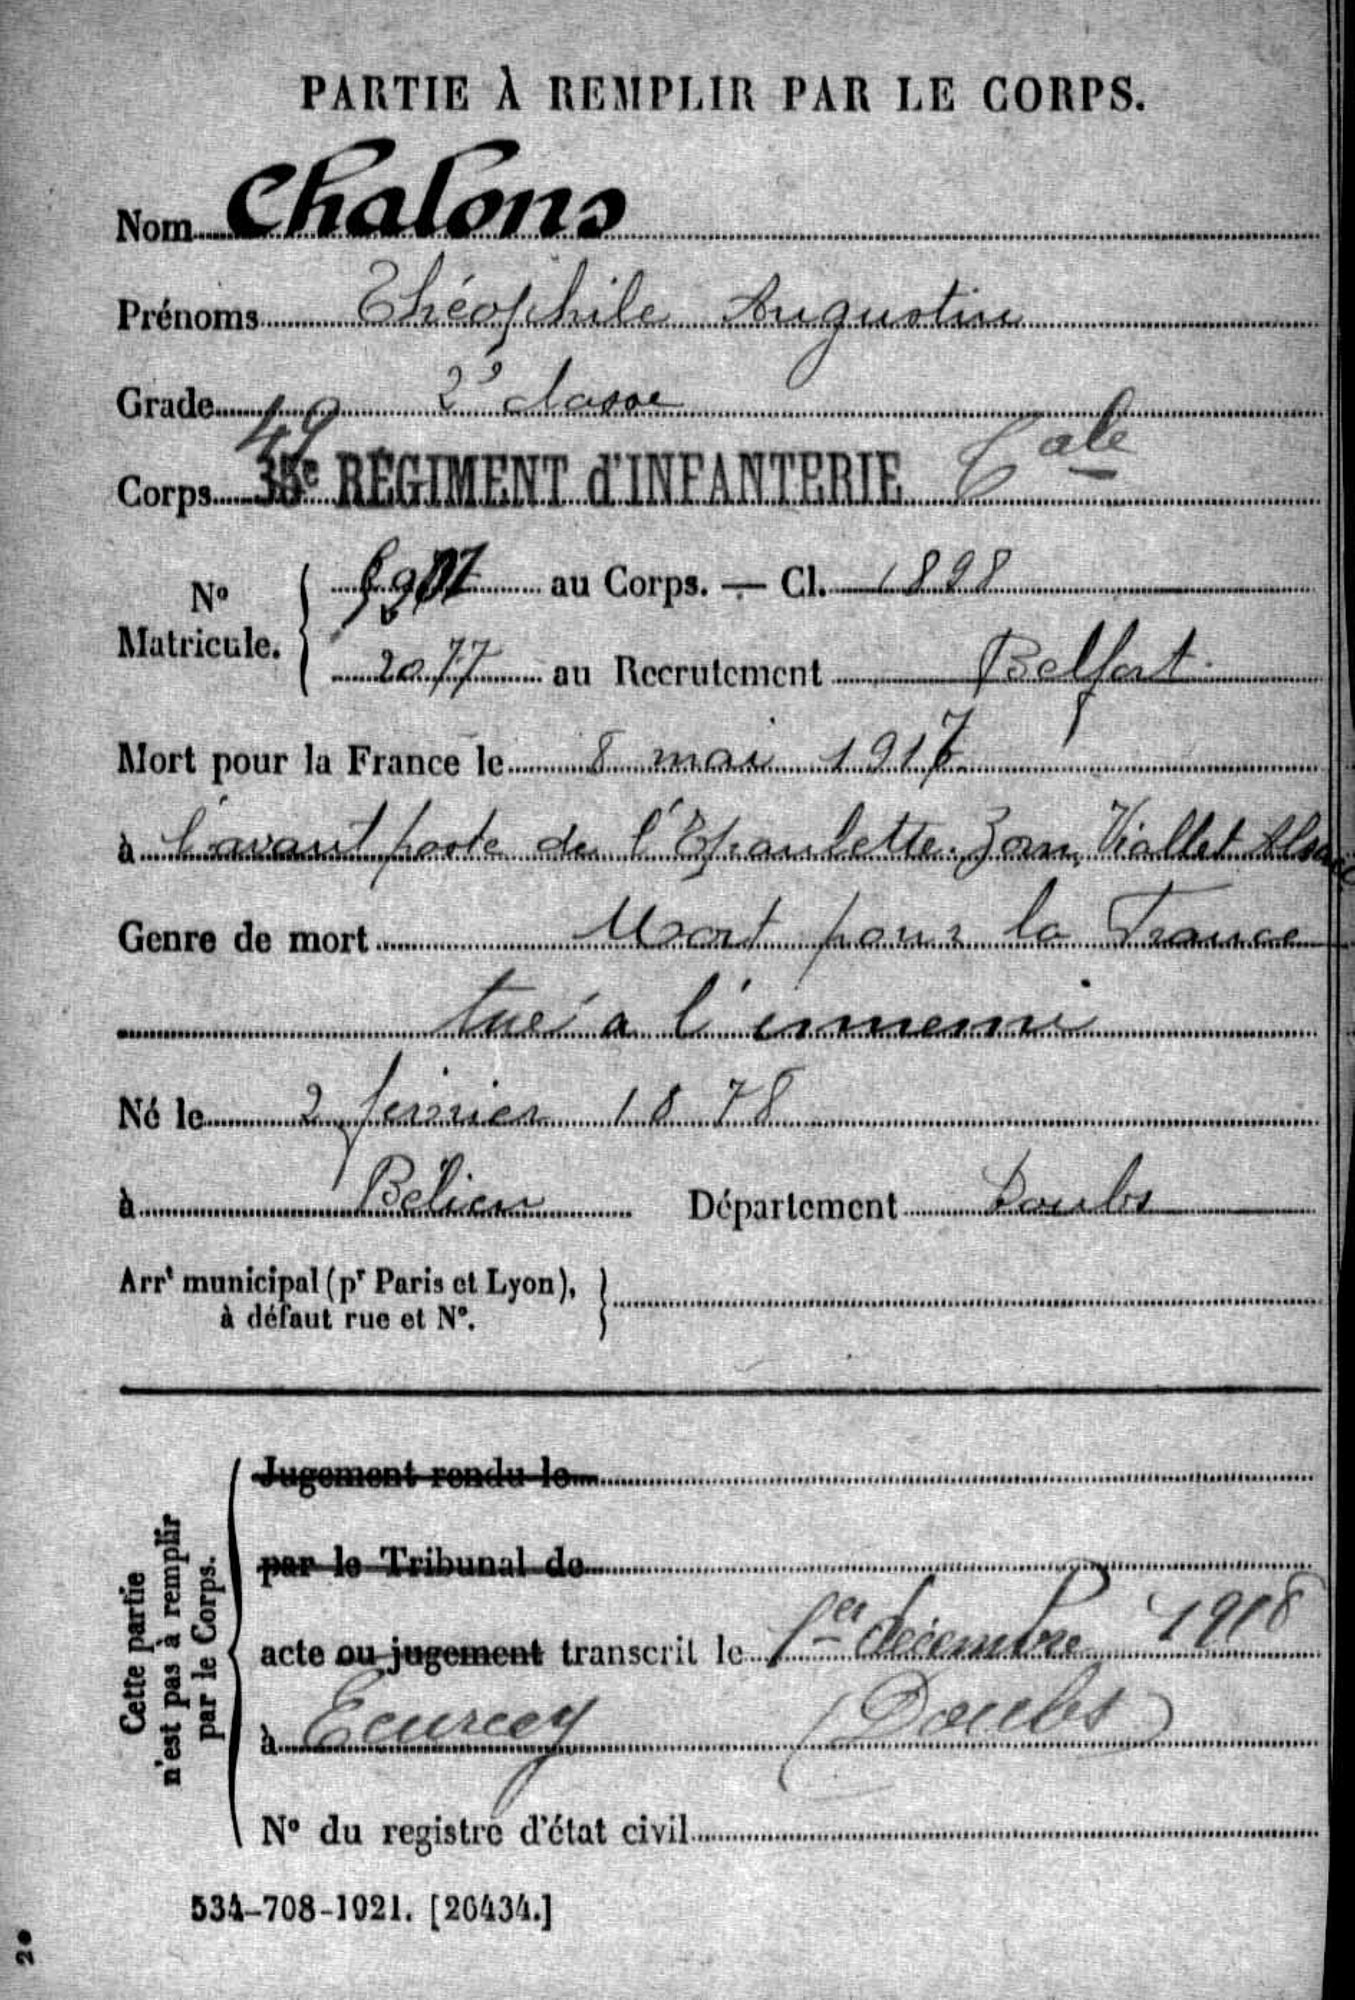 PARTIE À REMPLIR PAR LE CORPS.
Nom Chalons
Prénoms Théophile Augustin
Grade 2e classe
49
Corps 35e RÉGIMENT d'INFANTERIE Cale
No Matricule.
au Corps. — Cl. 1898
2077 au Recrutement Belfort.
Mort pour la France le 8 mai 1917
à l'avant poste de l'Epaulette. Viallet Alsace
Genre de mort Mort pour la France
tué a l'ennemi
Né le 2 février 1878
à Belieu Département Doubs
Arrt municipal (pr Paris et Lyon),
à défaut rue et No.
Cette partie
n'est pas à remplir
par le Corps.
Jugement rendu le
par le Tribunal de
acte ou jugement transcrit le 1er décembre 1918
à Ecurcey (Doubs)
No du registre d'état civil
534-708-1921. [26434.]
20